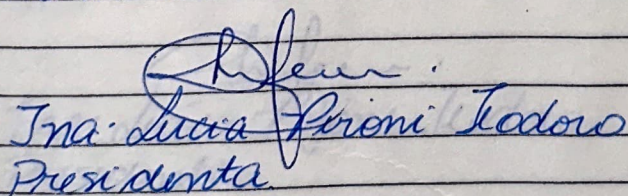 Ina. Lucia Pironi Teodoro
Presidenta